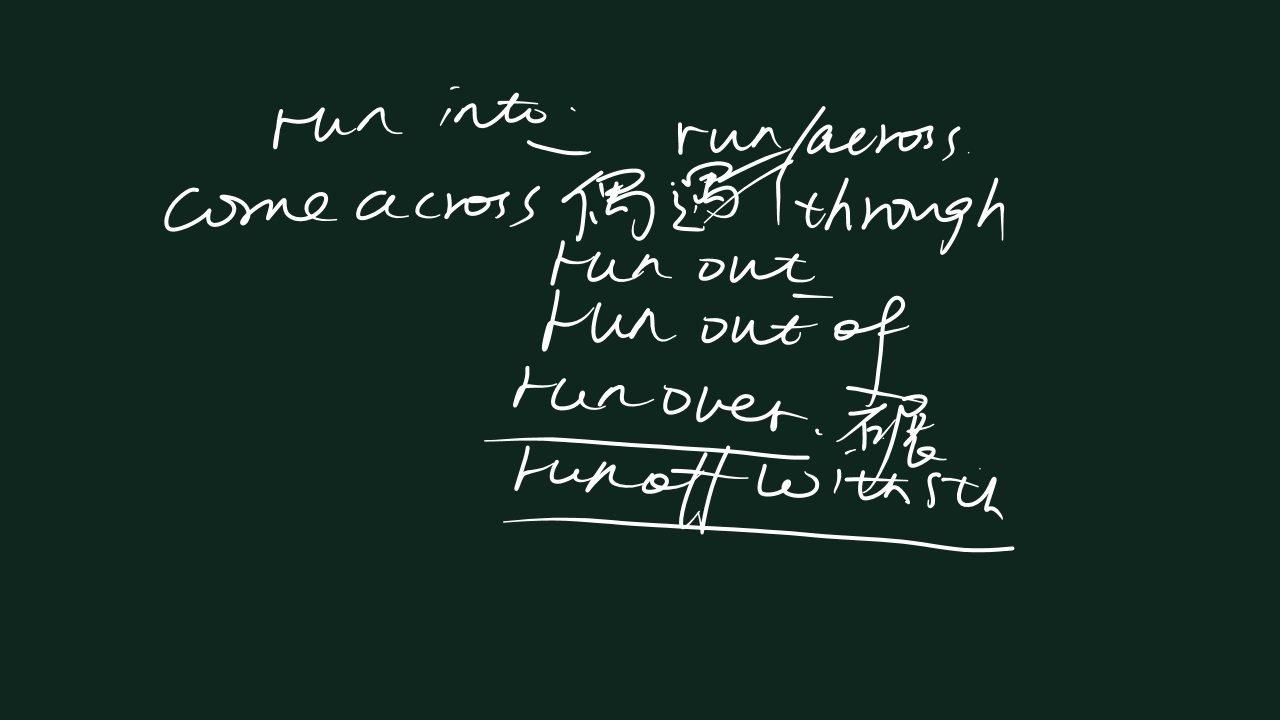 run into run/across.
come across 偶遇 through
run out
run out of
run over. 碾
run off with sth